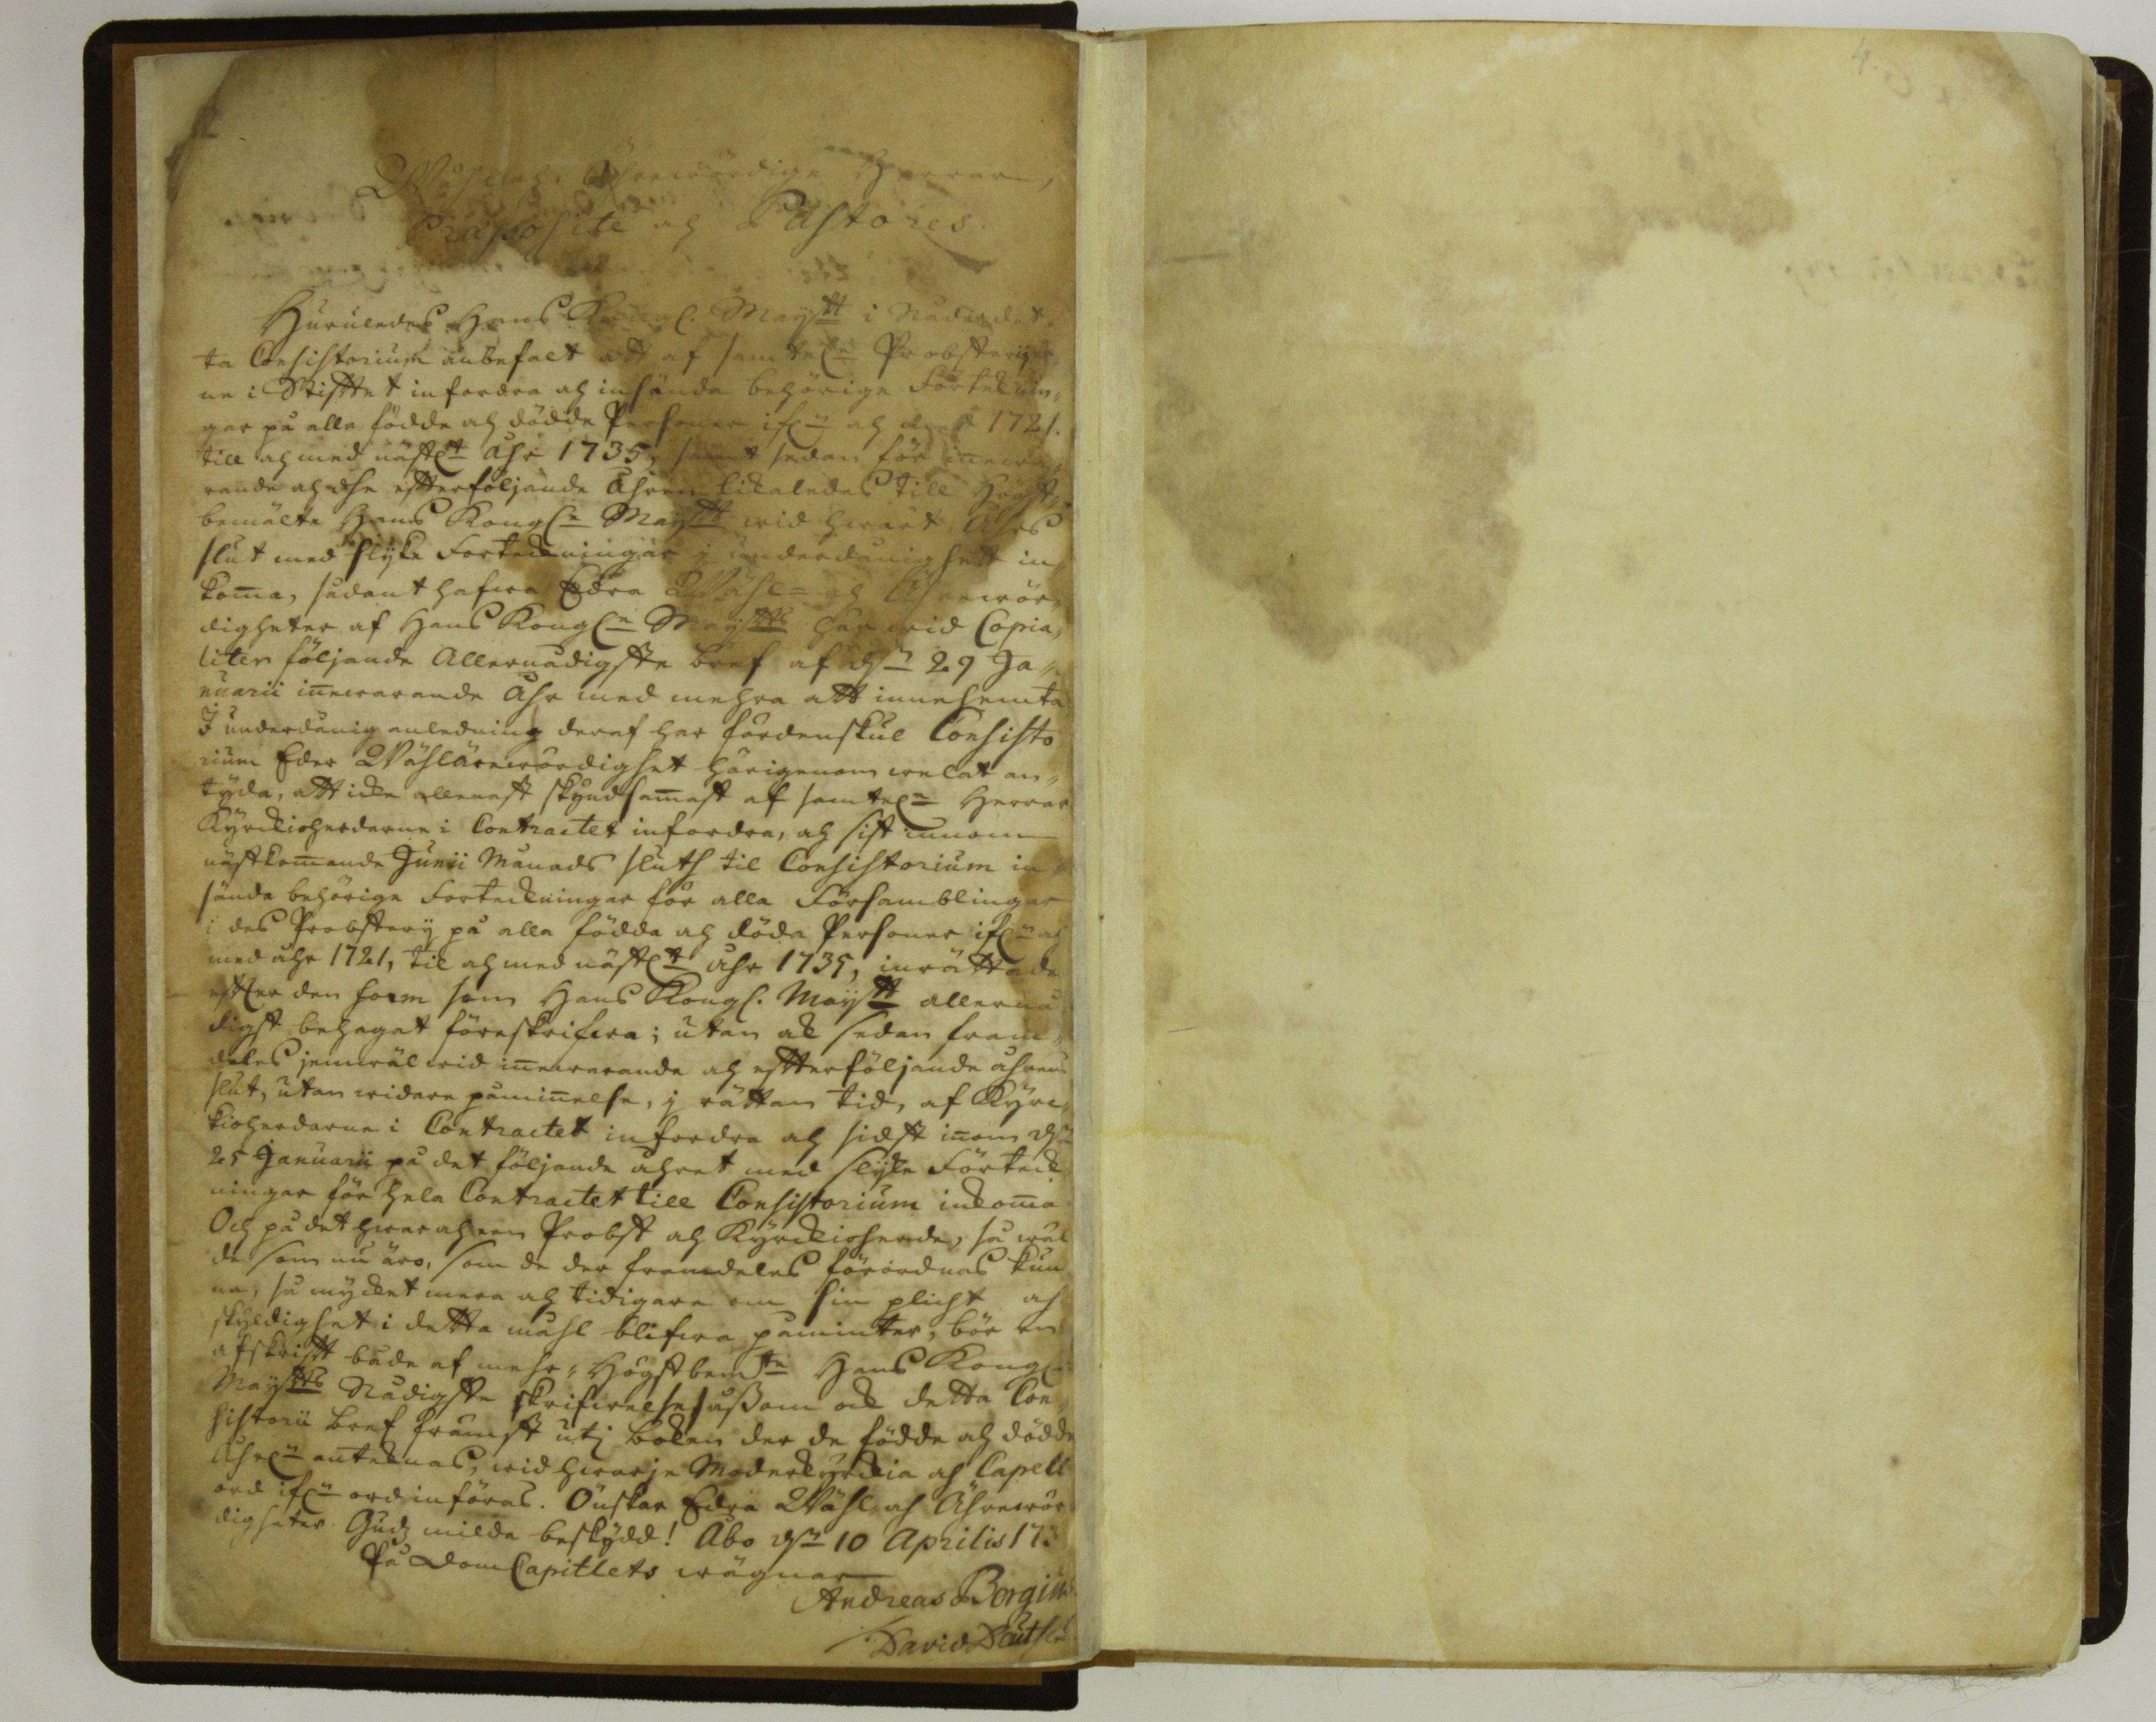 Wähl- och Ährewördige Herrar,
Præposite och Pastores.
Huruledes Hans Kongl. Maystt i Nåder det
ta Consistorium anbefalt att af samteln Probsterijer
ne i Stifftet infordra och insända behörige Förteknin„
gar på alla födde och dödde Personer ifrn och med 1721.
till och med nästlt Åhr 1735, samt sedan för innewa„
rande och the effterföljande Åhren likaledes till Högst„
bemälte Hans Konglr Maystt wid hwart Åhrs
slut med slyke Forteckningar j underdånighet in
komma, sådant hafwa Edra Wähl- och Ährewör„
digheter af Hans Konglr Maystts här wid Copia„
liter följande Allernådigste bref af dn 29 Ja„
nuarii innewarande Åhr med mehra att innehemta
I underdånig anledning deraf har fördenskul Consisto
rium Eder Wählärewördighet härigenom welat an„
tyda, att icke allenast skyndsammast af samteln Herrar
Kyrckioherdarne i Contractet infordra, och sist innom
nästkommande Junii Månads sluth til Consistorium in„
sända behörige Forteckningar för alla Församblingar
i des Probstery på alla födda och döda Personer ifrn och
med åhr 1721, til och med nästlt åhr 1735, inrättade
efter den form som Hans Kongl. Maystt allernå
digst behagat föreskrifwa; utan ock sedan fram„
deles jemwäl wid innewarande och effterföljande åhrens
slut, utan widare påminnelse, j rättan tid, af Kyrc„
kioherdarne i Contractet infordra och sidst innom dn
25 Januarii på det följande åhret med slyke Förteck
ningar för hela Contractet till Consistorium inkomma
Och på det hwar och een Probst och Kyrckioherde, så wäl
de som nu äro, som de der framdeles förordnas kun
na, så mycket mera och tidigare om sin plicht och
skyldighet i detta måhl blifwa påminter, bör en
afskrifft både af mehr„ Högstbemte Hans Kongl
Maystts Nådigste skrifwelse såssom ock detta Con
sistorii bref främst uti boken der de födde och dödde
Åhrln antecknas, wid hwarje Moderkyrckia och Capell
ord ifrn ord införas. Önskar Edra Wähl och Ährewör
digheter Gudz milda beskydd! Åbo dn 10 Aprilis 173
På DomCapitlets wägnar
Andreas Bergius
David Deutsch